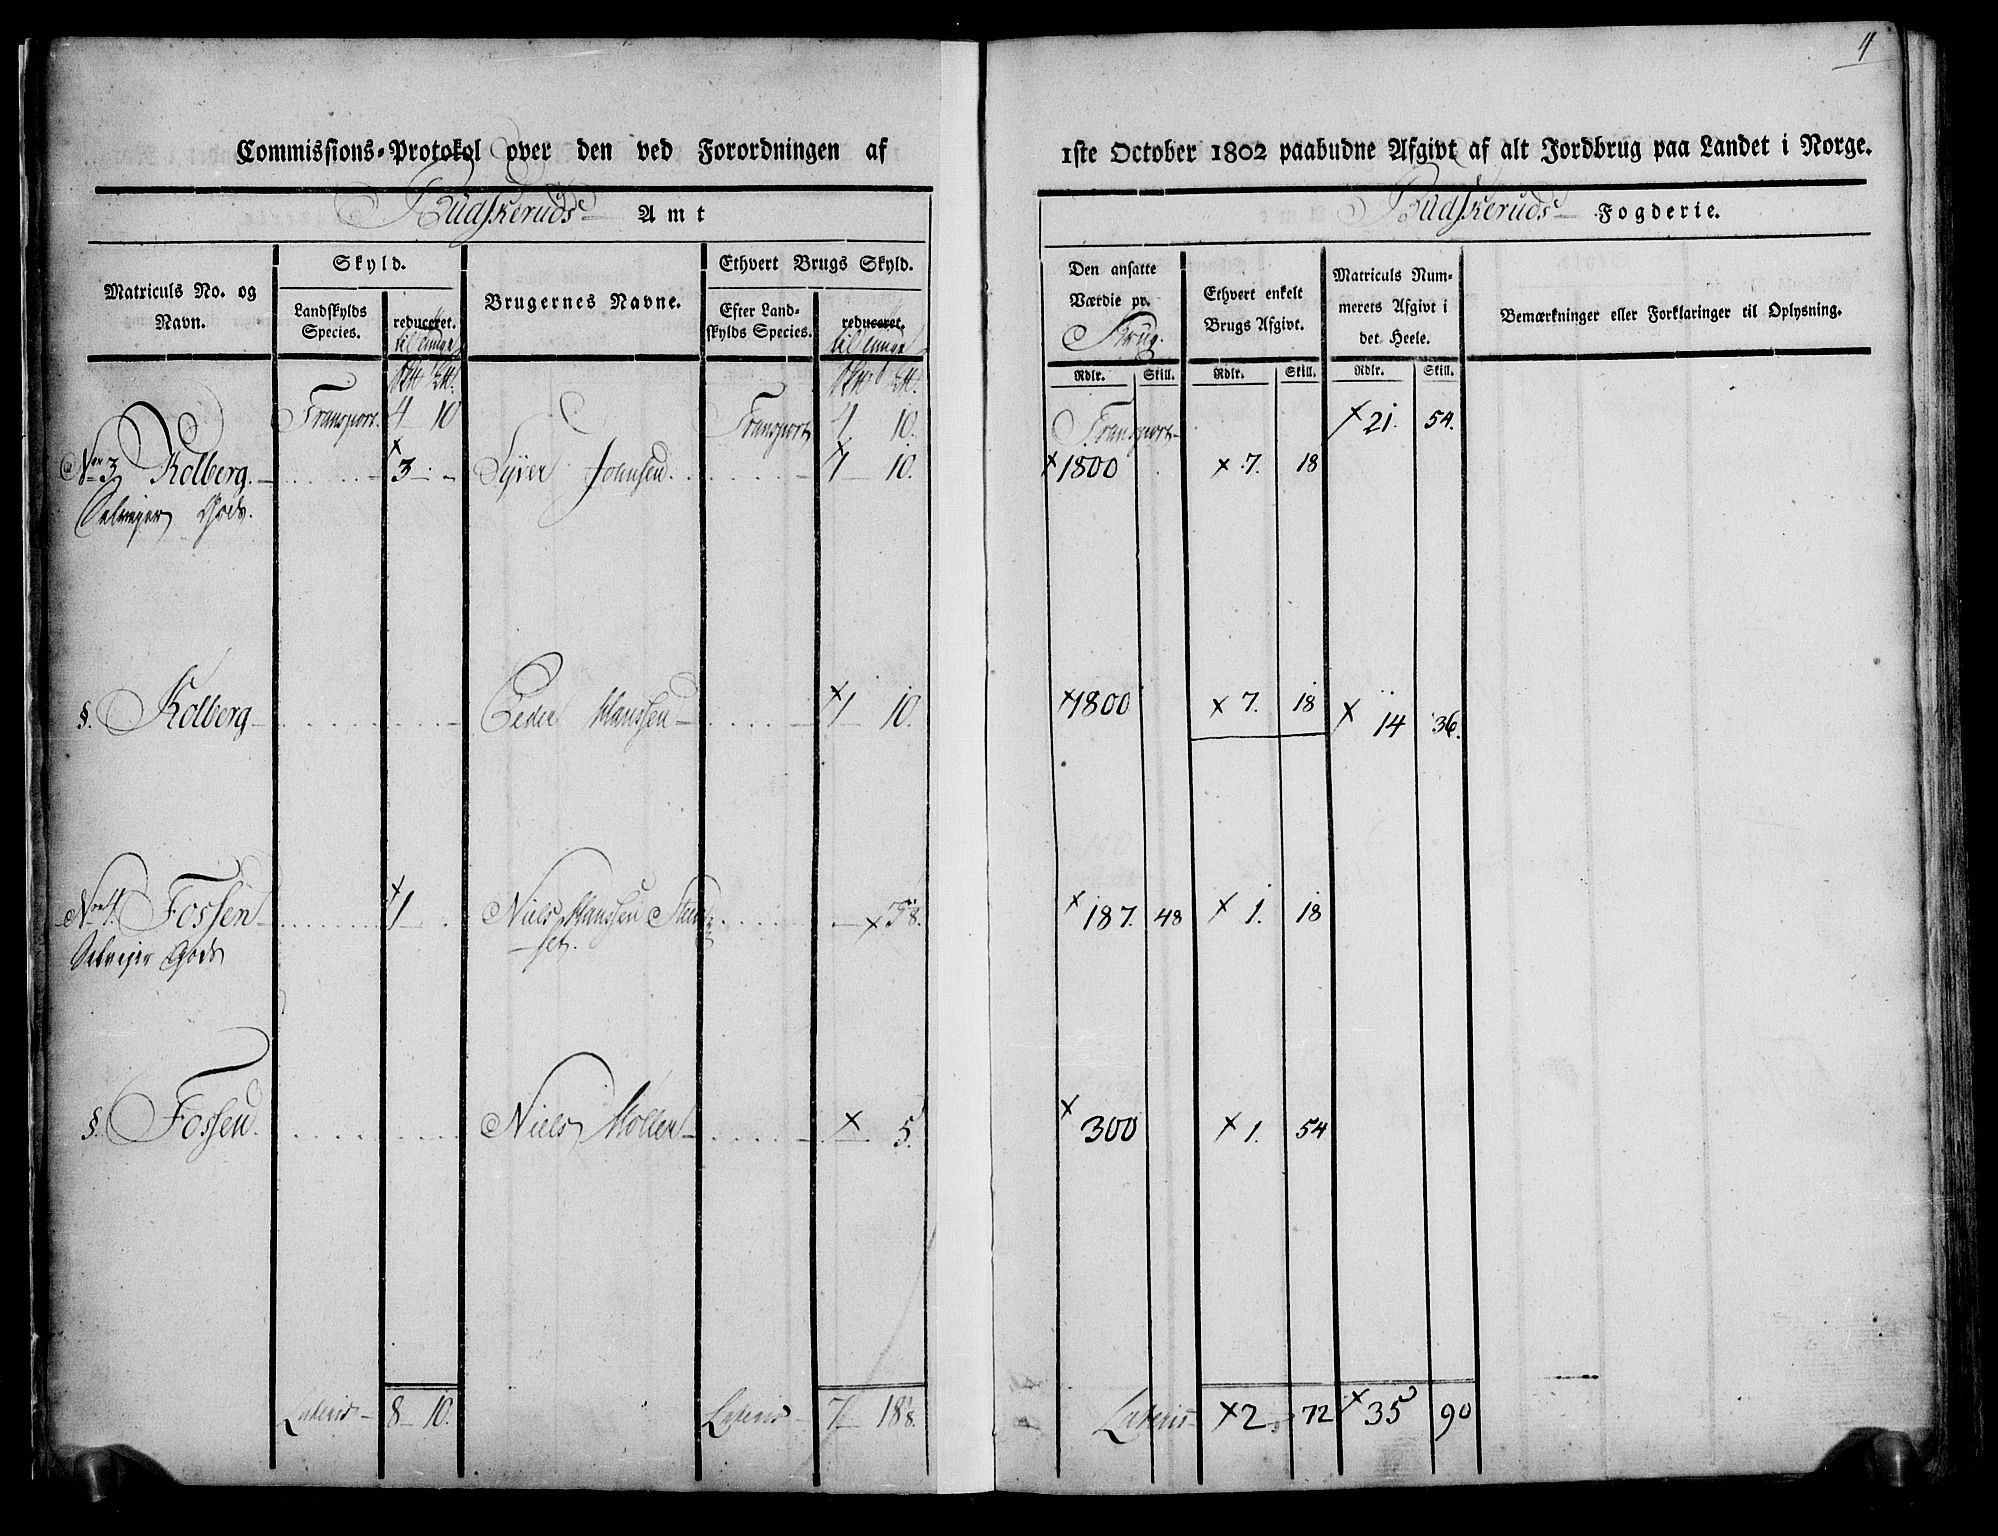 4
Commissions-Protokol over den ved Forordningen af
1ste October 1802 paabudne Afgivt af alt Jordbrug paa Landet i Norge.
Budskeruds Amt
Budskeruds Fogderie.
Matriculs No. og Navn.
Skyld.
Landskylds Species.
reduceret.
til tunge
Brugernes Navne.
Ethvert Brugs Skyld.
Efter Landskylds Species.
reduceret.
til tunge
Den ansatte Værdie pr. Brug.
Ethvert enkelt Brugs Afgivt.
Matriculs Nummerets Afgivt i det Heele.
Bemærkninger eller Forklaringer til Oplysning.
Rdlr. Skill. Rdlr. Skill. Rdlr. Skill.
Transport. 4 10 Transport 4 10. Transport x 21. 54.
No 3 Kolberg x 3 Syver Johnsen x 1 10. x 1800 x 7. 18
Selveyer Gods.
§. Kolberg Peder Hanssen x 1 10. x 1800 x 7. 18 x 14 36.
No 4. Fossen x 1 Niels Hanssen x x 187. 48 x 1. 18
set.
Selveyer Gods
§. Fossen Niels Møller x 5. x 300 x 1. 54
Lateris 8 10. Lateris 7 18 1/8. Lateris x 2 72 x 35 90